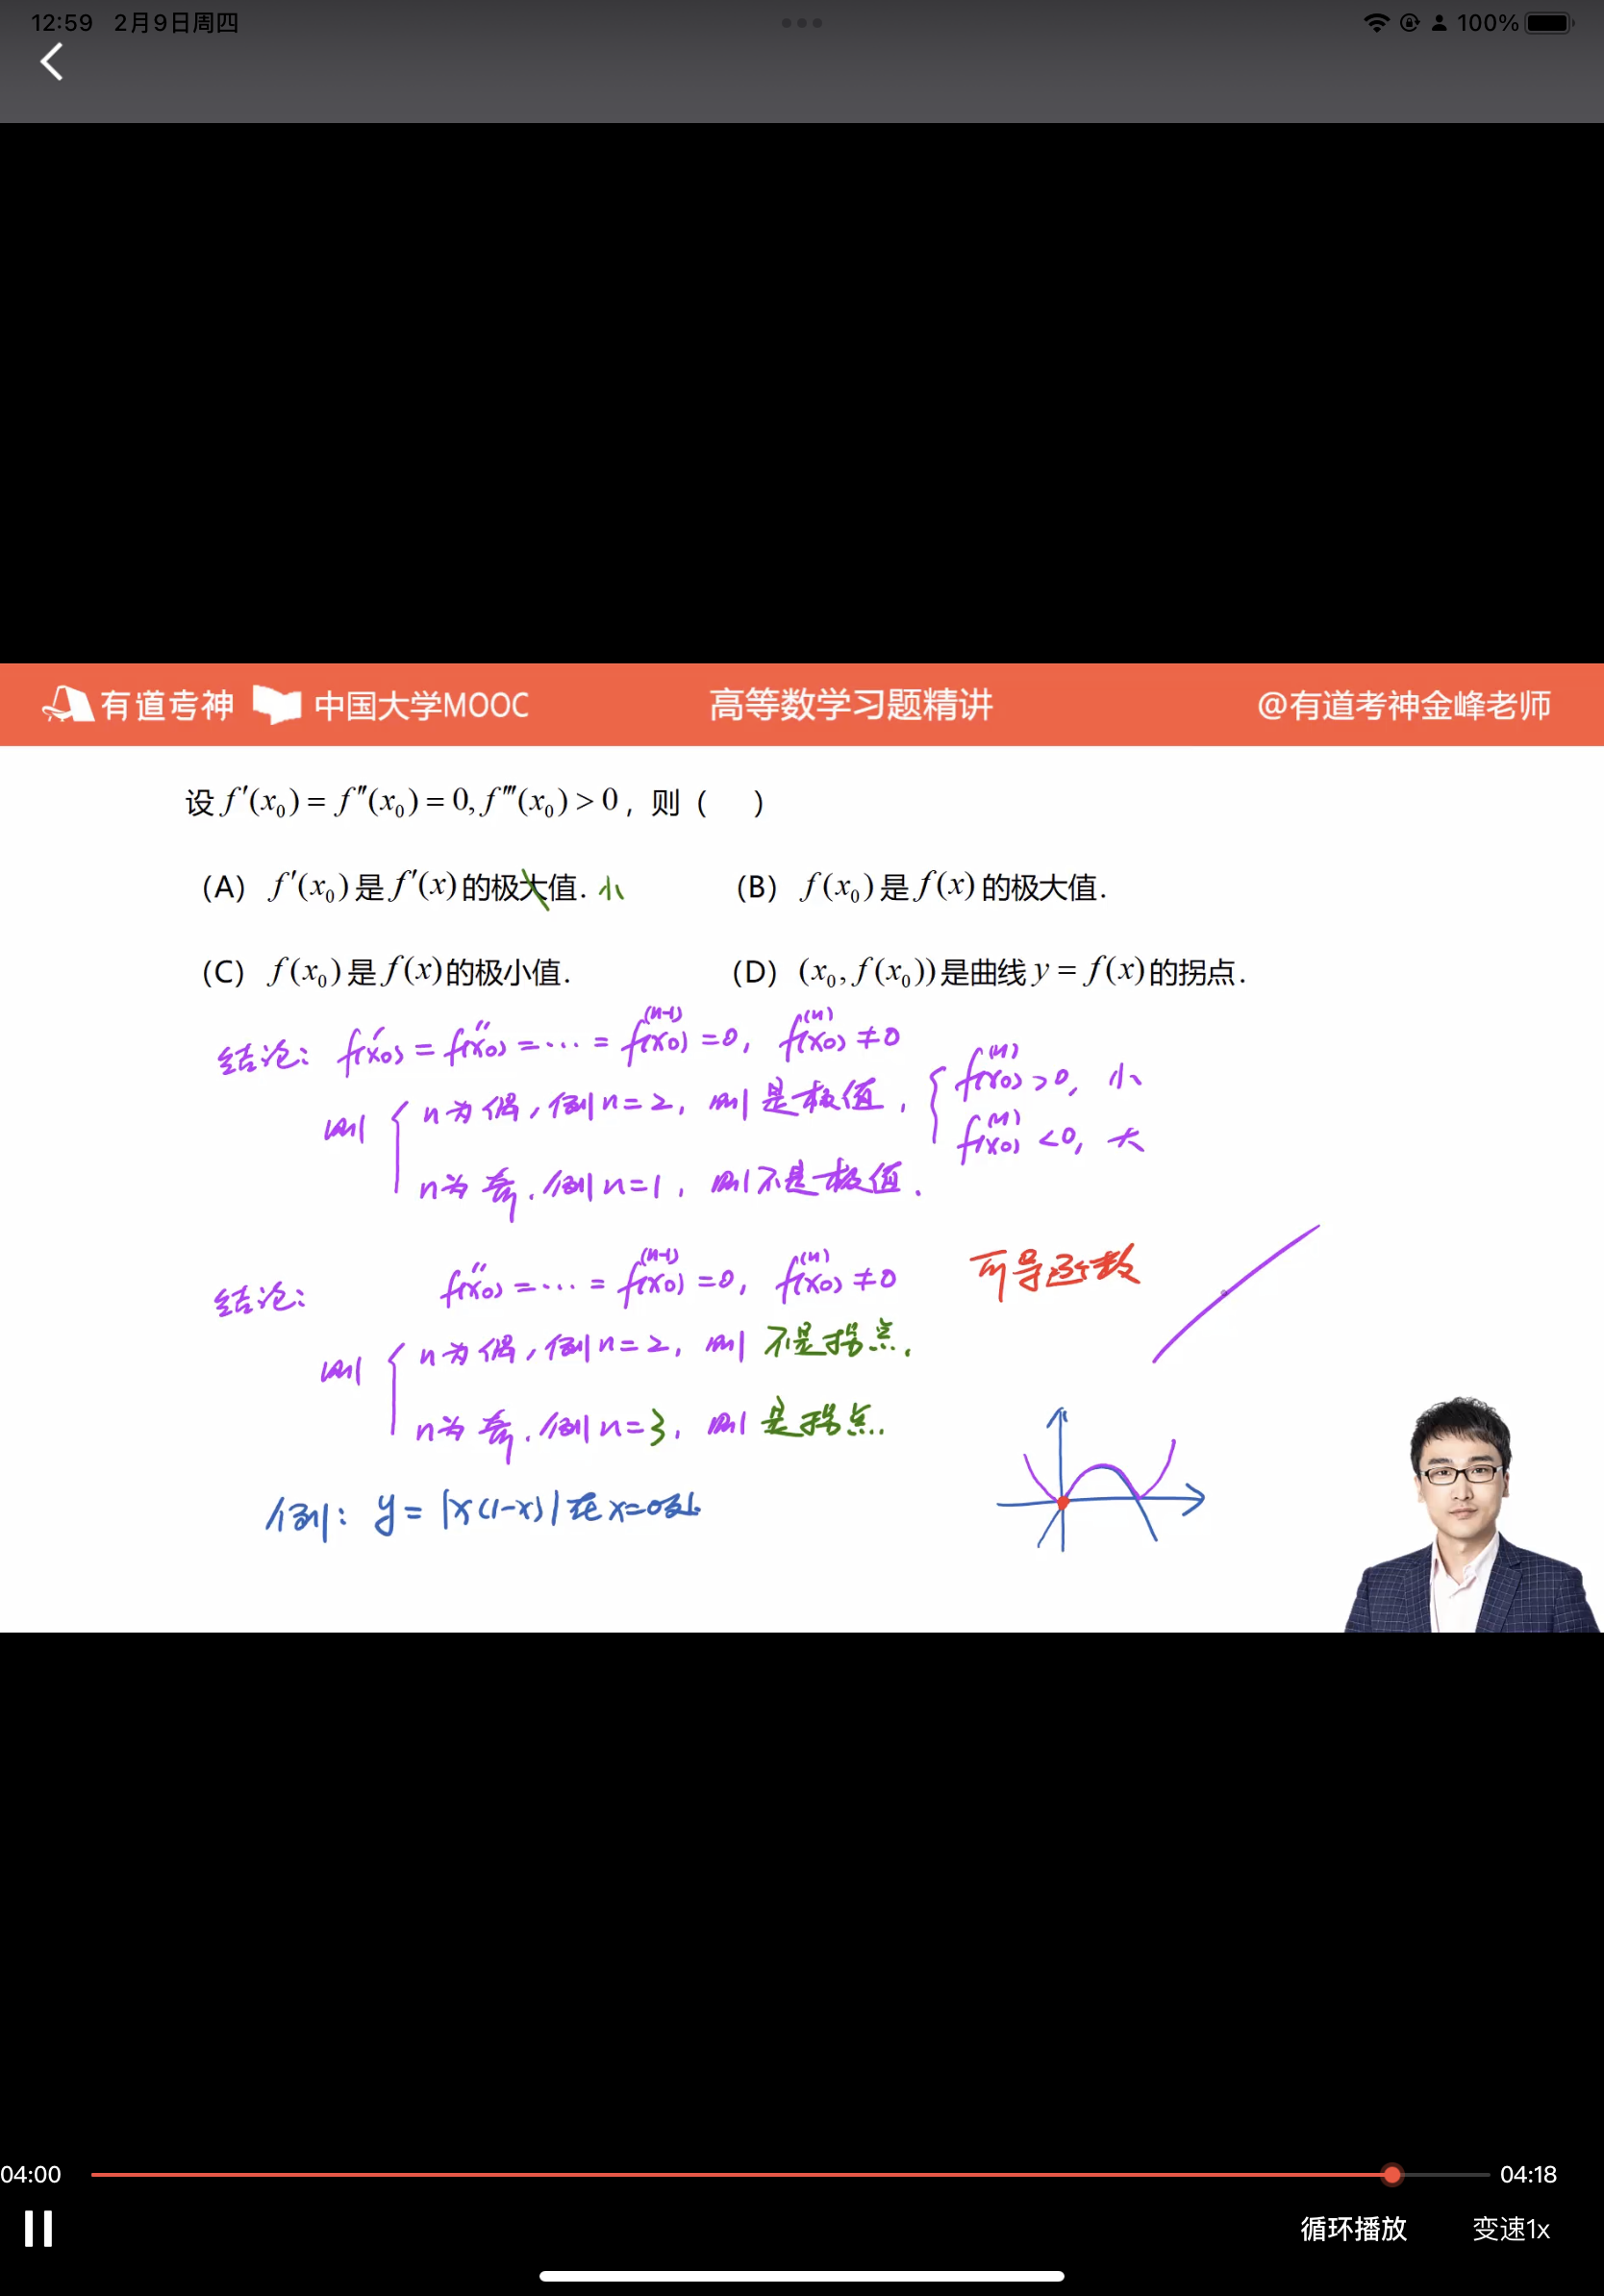 12:59 2月9日周四
100%
有道考神 中国大学MOOC 高等数学习题精讲 @有道考神金峰老师
设 f′(x₀) = f″(x₀) = 0, f‴(x₀) > 0, 则 ( )
(A) f′(x₀) 是 f′(x) 的极大值. 小
(B) f(x₀) 是 f(x) 的极大值.
(C) f(x₀) 是 f(x) 的极小值.
(D) (x₀, f(x₀)) 是曲线 y = f(x) 的拐点.
结论: f′(x₀) = f″(x₀) = ⋯ = f⁽ⁿ⁻¹⁾(x₀) = 0, f⁽ⁿ⁾(x₀) ≠ 0
则 { n为偶, 例n=2, 则是极值, { f⁽ⁿ⁾(x₀) > 0, 小
f⁽ⁿ⁾(x₀) < 0, 大
n为奇. 例n=1, 则不是极值.
结论: f″(x₀) = ⋯ = f⁽ⁿ⁻¹⁾(x₀) = 0, f⁽ⁿ⁾(x₀) ≠ 0 可导函数
则 { n为偶, 例n=2, 则不是拐点.
n为奇. 例n=3, 则是拐点.
例: y = |x(1-x)| 在x=0处
04:00 04:18
循环播放 变速1x